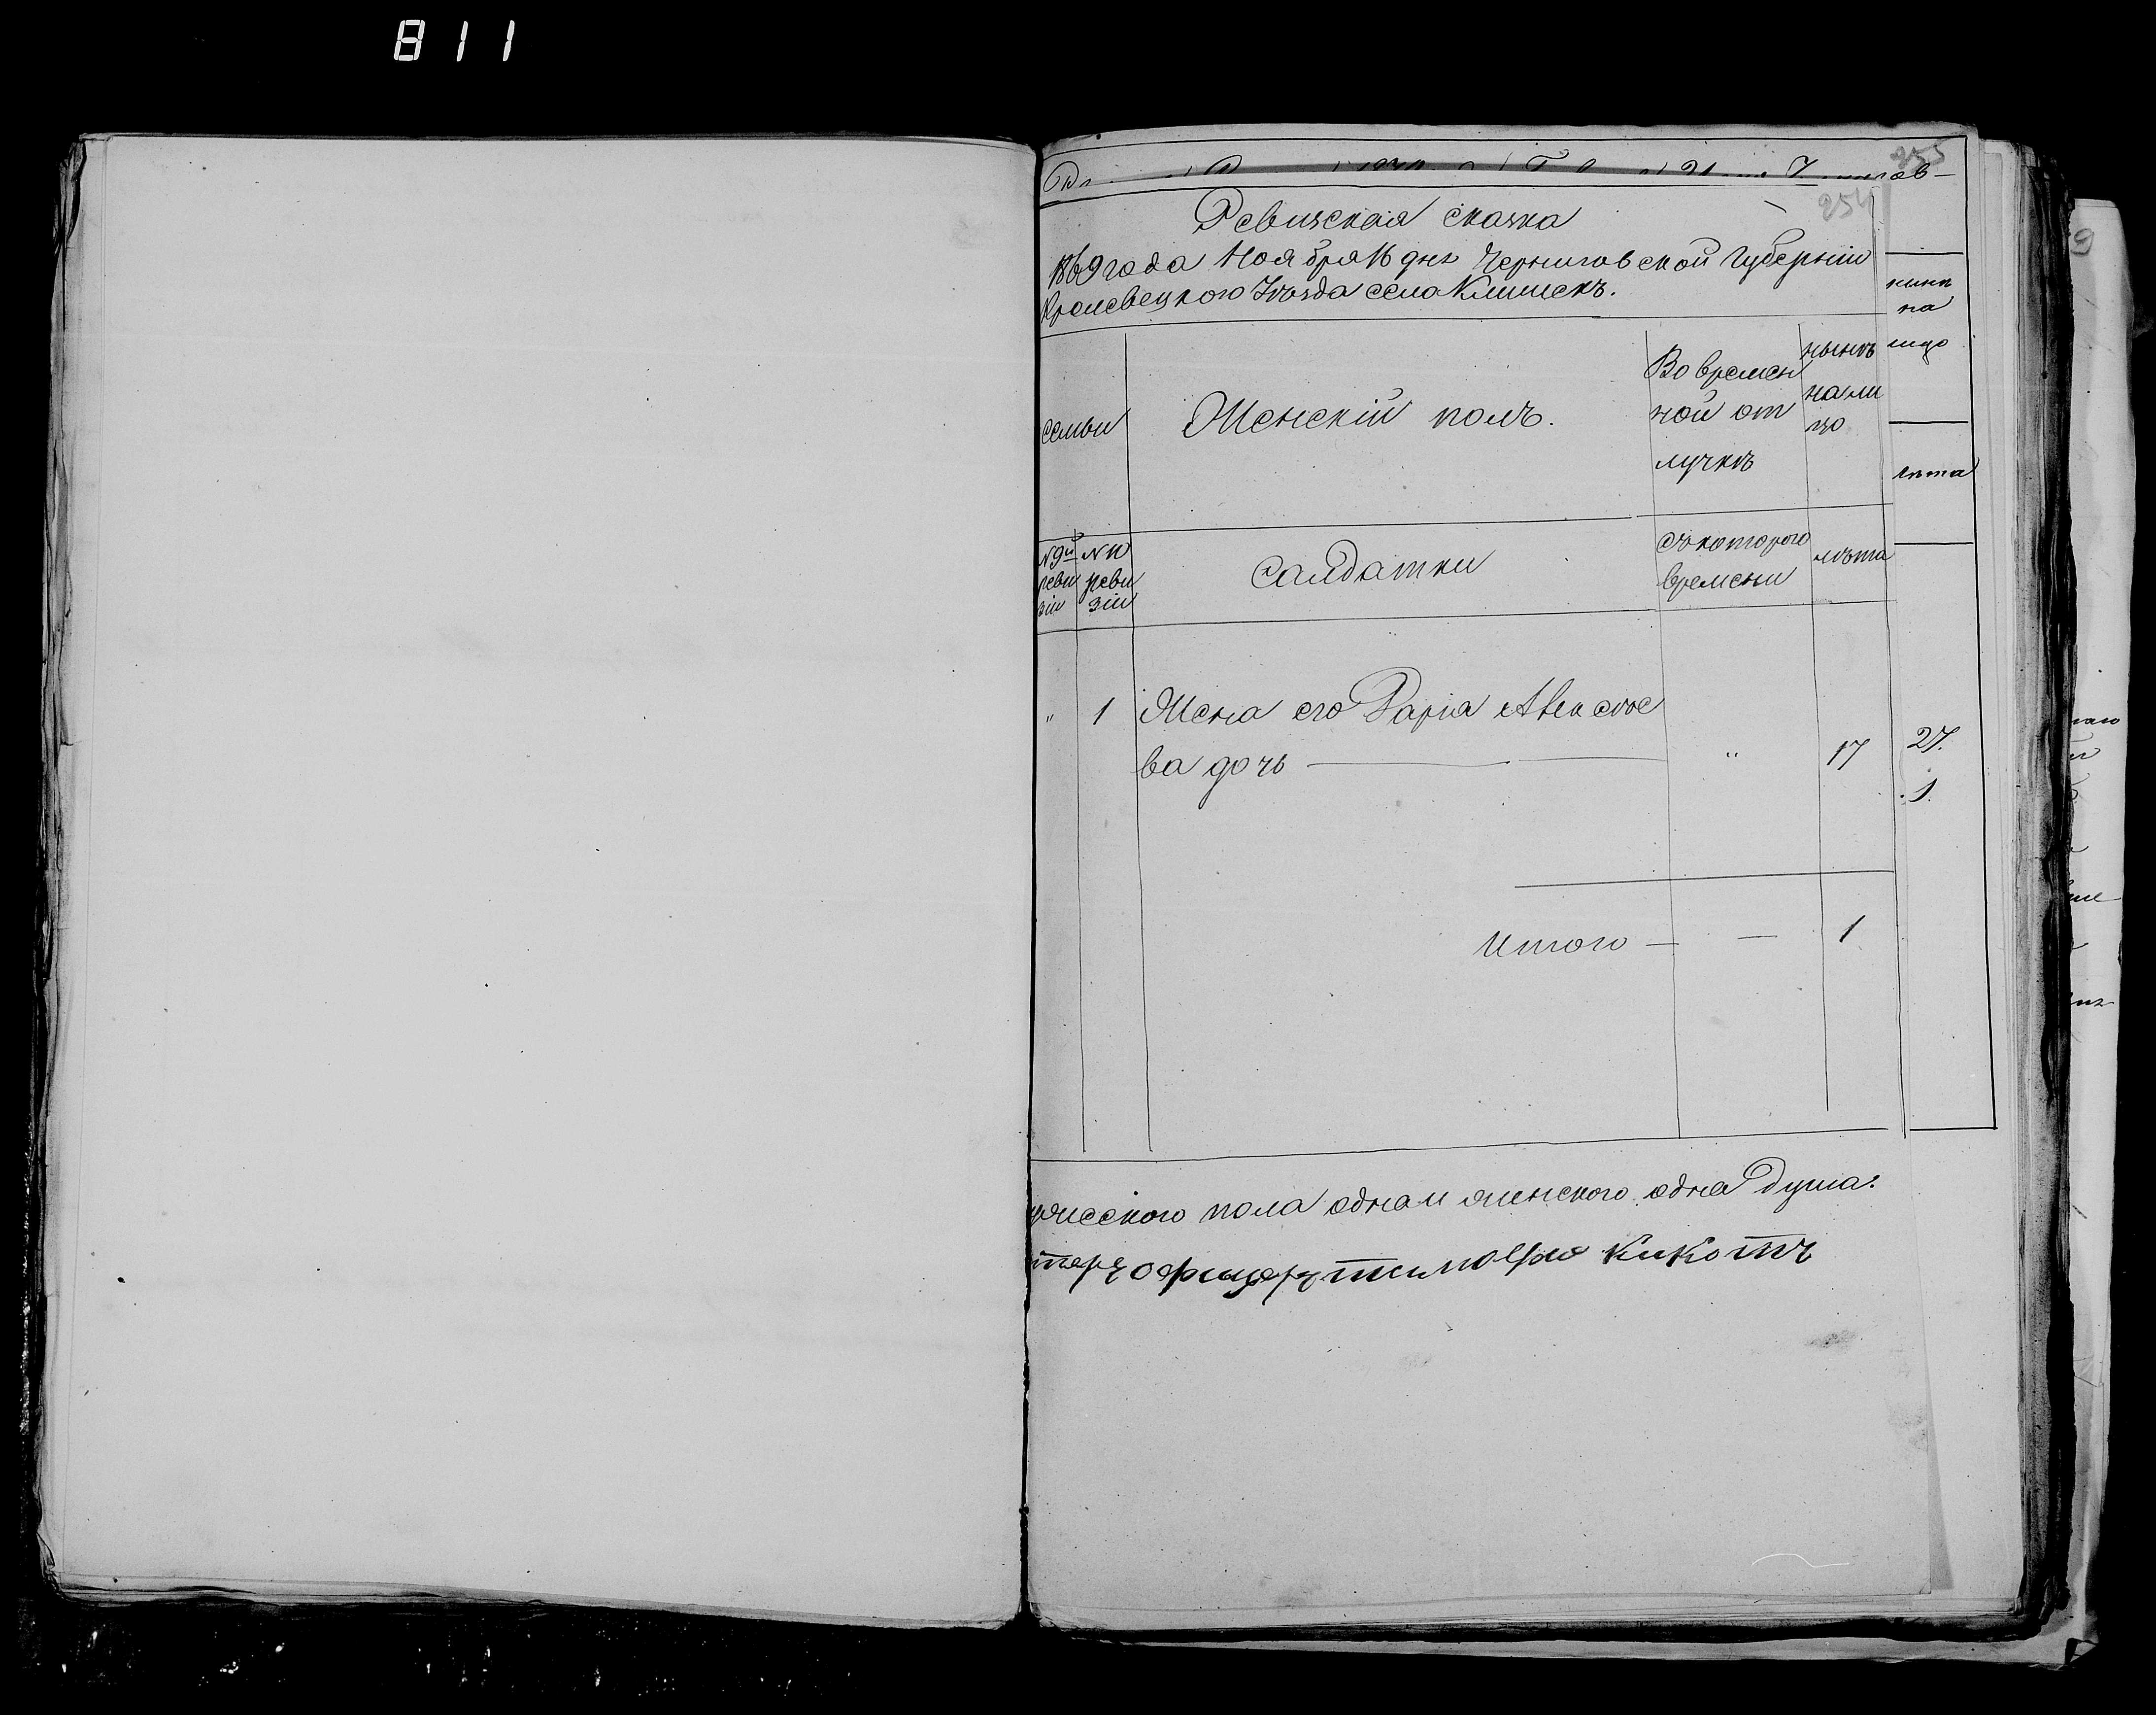 811
255
254
Ревизская сказка
1869 года Ноября 16 дня Черниговской Губерніи
Кролевецкого Уѣзда села Клишекъ.
семьи
Женскій полъ.
Во времен
ной от
лучкѣ
нынѣ
нали
цо
на
лицо
лѣта
№ 9й
реви
зіи
№ 10
реви
зіи
Салдатки
Съ которого
времени
лѣта
" 1 Жена его Дарія Алексѣе
ва дочь " 17
27.
1.
Итого — — 1
мужеского пола одна и женского одна душа.
теръ офицеръ тимофѣю Кикотъ